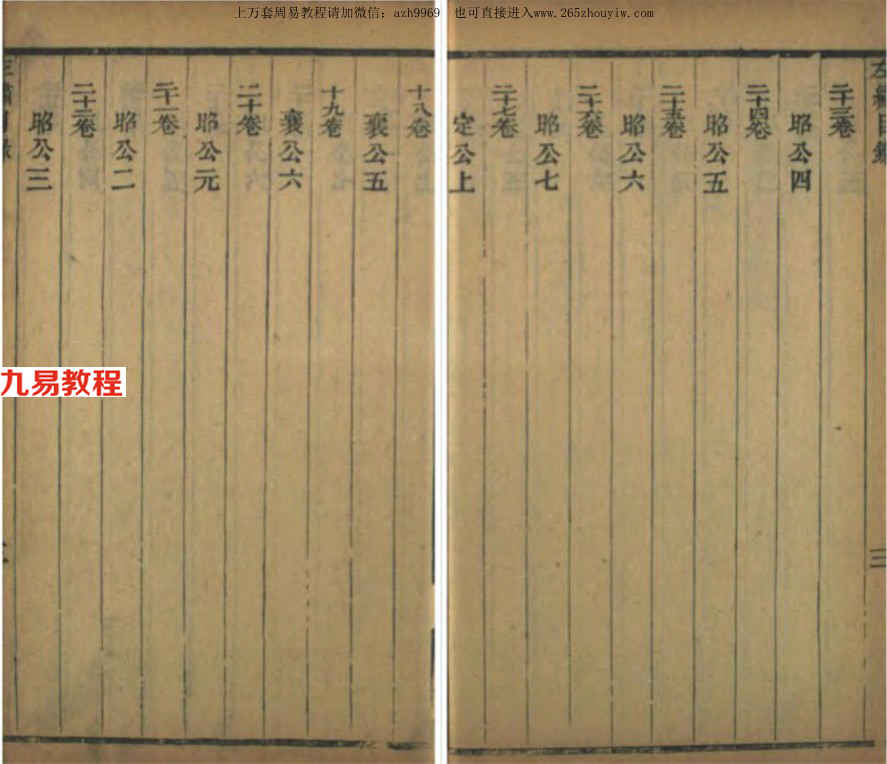 上万套周易教程请加微信：azh9969 也可直接进入www.265zhouyiw.com
十八卷
襄公五
十九卷
襄公六
二十卷
昭公元
二十一卷
昭公二
二十二卷
昭公三
左繡目錄
左繡目錄
三
二十三卷
昭公四
二十四卷
昭公五
二十五卷
昭公六
二十六卷
昭公七
二十七卷
定公上
九易教程